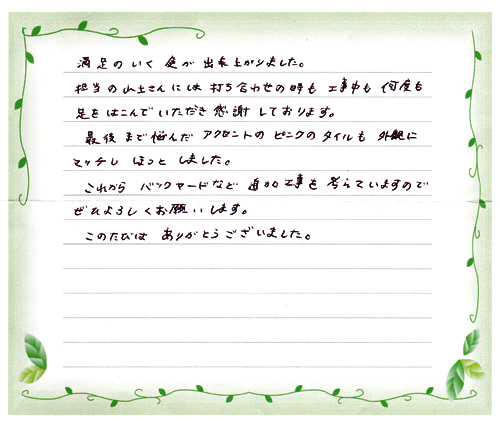 満足のいく 庭が 出来上がりました。
担当の 山土さんには 打ち合わせの時も 工事中も 何度も
足をはこんでいただき 感謝しております。
最後まで悩んだ アクセントの ピンクの タイルも 外観に
マッチし ほっと しました。
これから バックヤードなど 追加工事も 考えていますので
ぜひよろしくお願いします。
このたびは ありがとうございました。